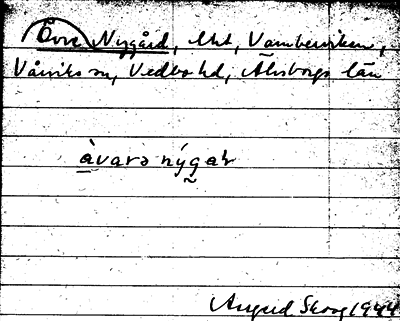 Övre Nygård, lht, Vambersviken,
Vårviks sn, Vedbo hd, Älvsborgs län
àvarə nýgaɽ
Ingrid Skoog 1944